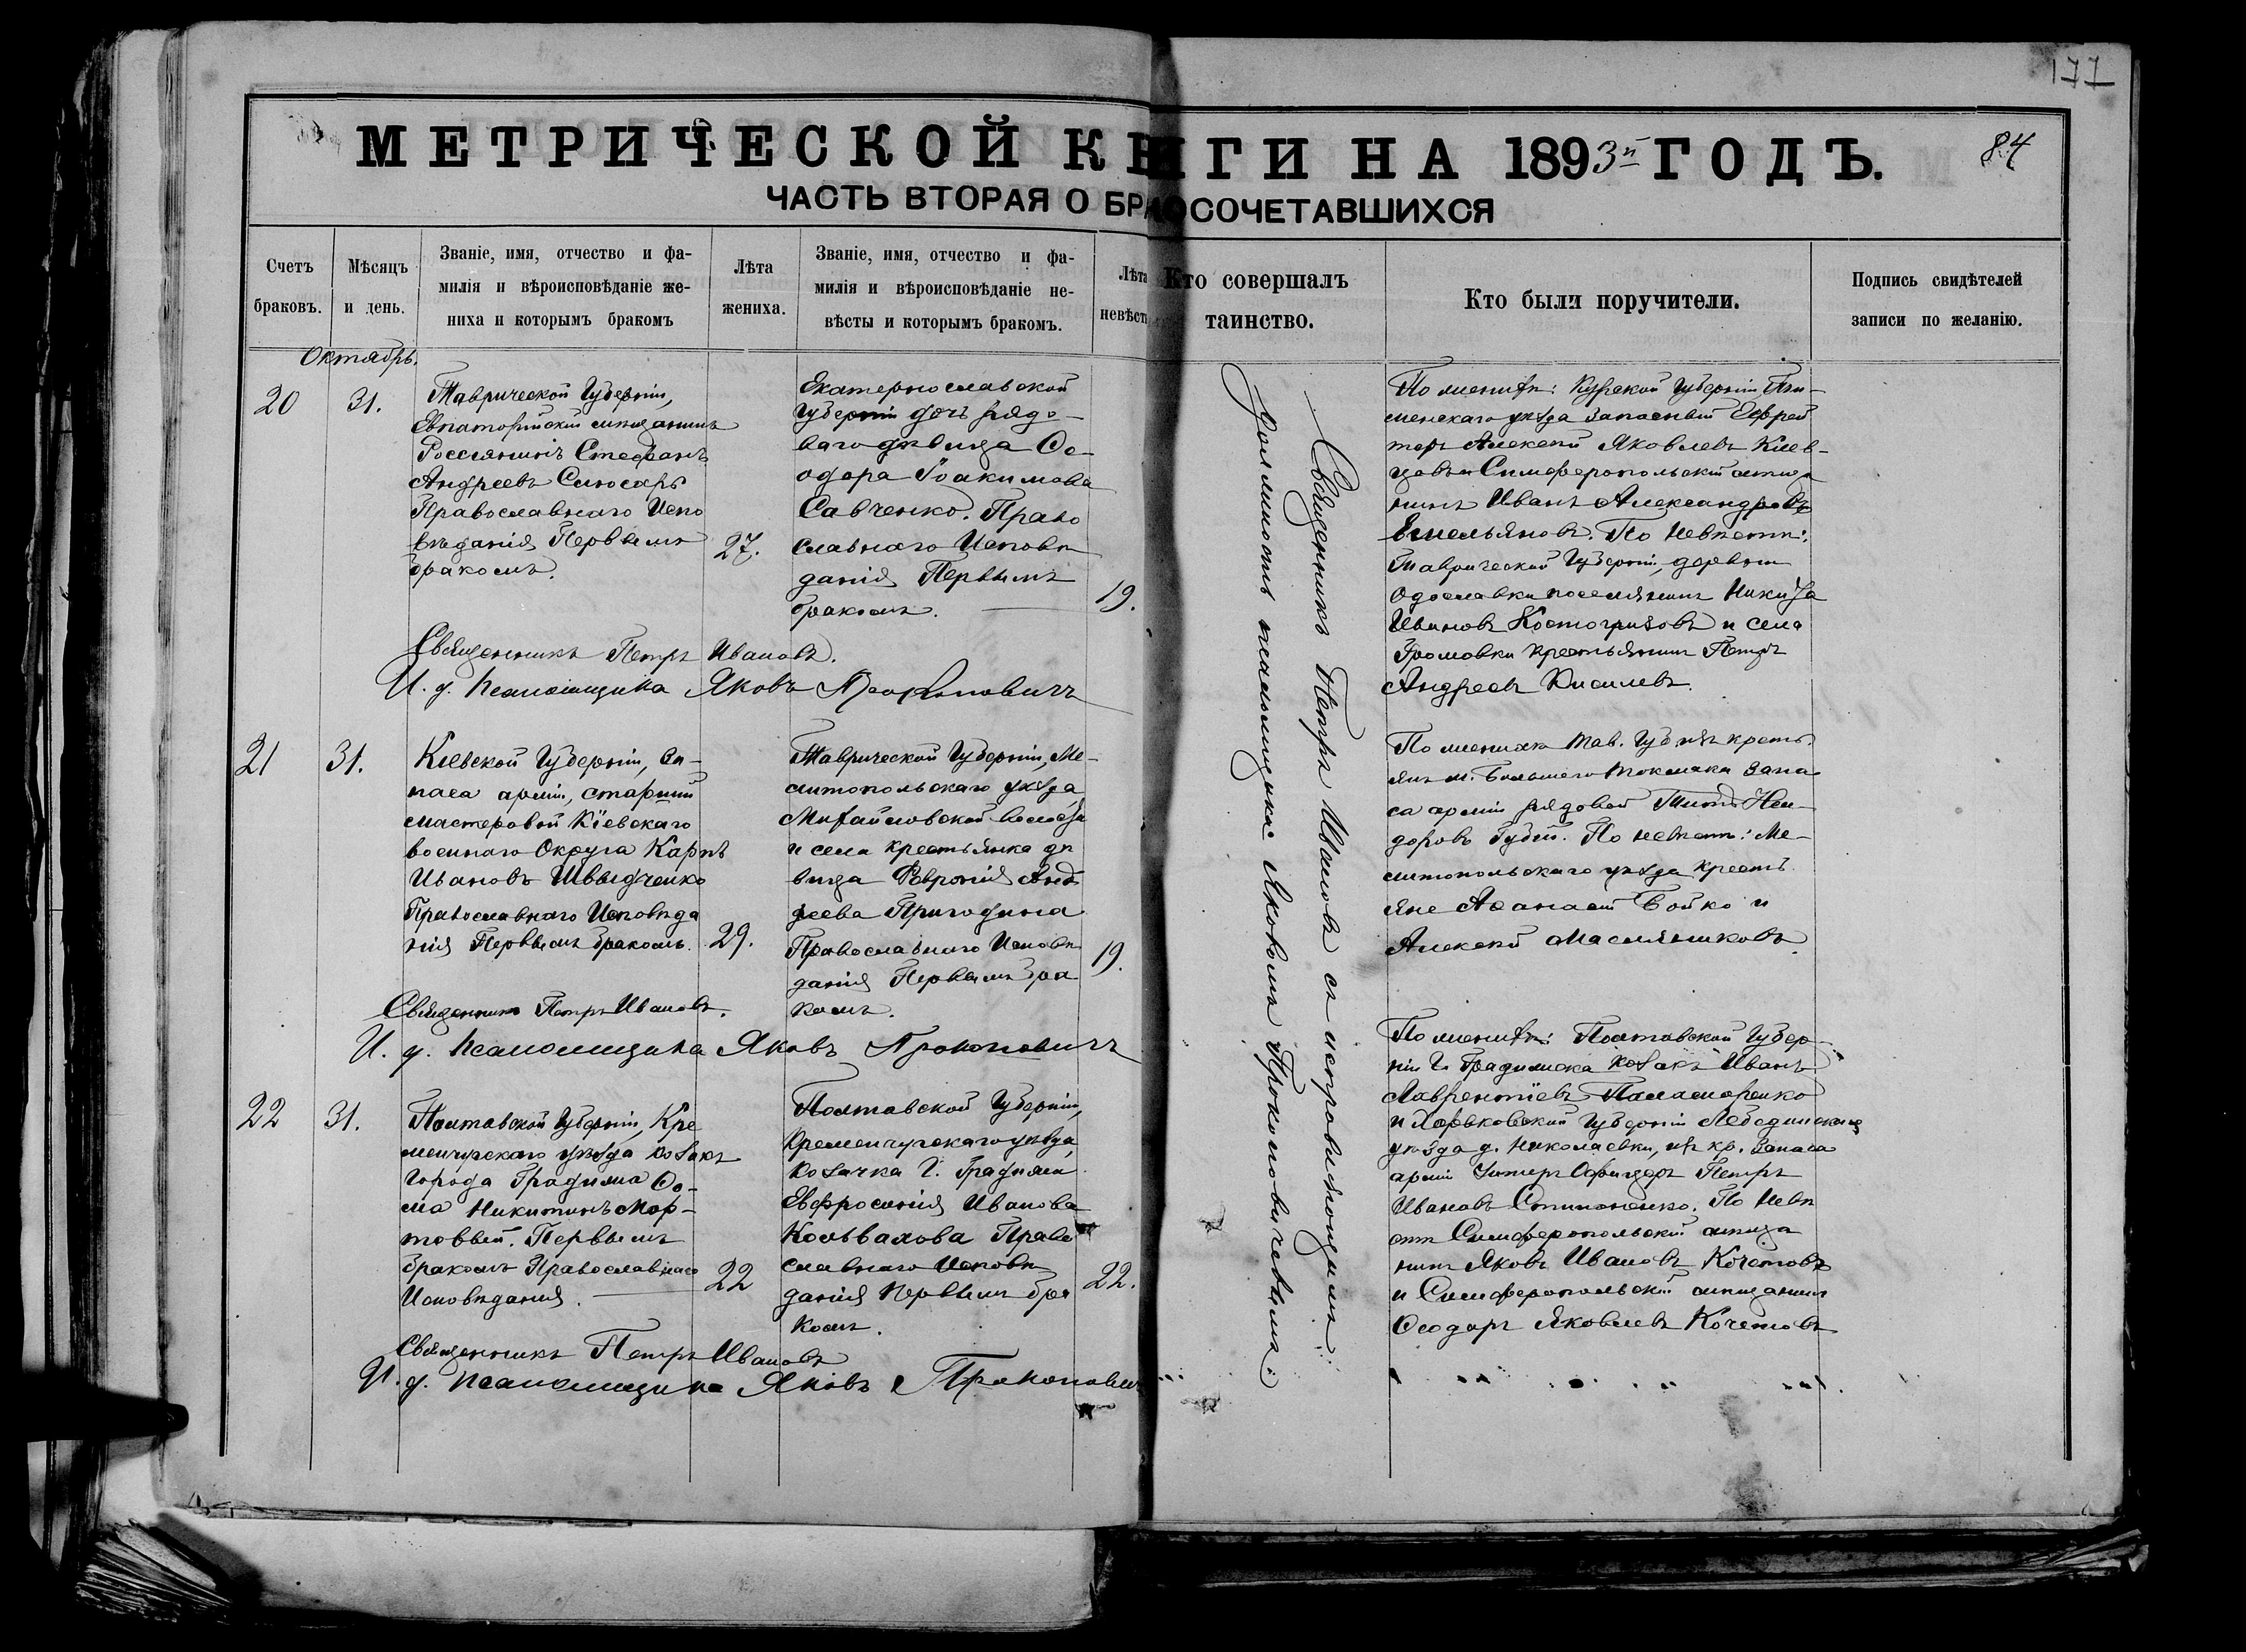 177
МЕТРИЧЕСКОЙ КНИГИ НА 1893й ГОДЪ.
84
ЧАСТЬ ВТОРАЯ О БРАКОСОЧЕТАВШИХСЯ
Счетъ
браковъ.
Мѣсяцъ
и день.
Званіе, имя, отчество и фа-
милія и вѣроисповѣданіе же-
ниха и которымъ бракомъ
Лѣта
жениха.
Званіе, имя, отчество и фа-
милія и вѣроисповѣданіе не-
вѣсты и которымъ бракомъ.
Лѣта
невѣсты
Кто совершалъ
таинство.
Кто были поручители.
Подпись свидѣтелей
записи по желанію.
Октябрь.
20
31.
Таврической Губерніи,
Евпаторійскій мещанинъ
Россіянинъ Стефанъ
Андреевъ Слюсарь
Православнаго Испо
вѣданія Первымъ
бракомъ.
27.
Екатеринославской
Губерніи дочь рядо-
ваго дѣвица Ѳе-
одора Іоакимова
Савченко. Право
славнаго Исповѣ
данія Первымъ
бракомъ.
19.
Священникъ Петръ Ивановъ.
И. д. псаломщика Яковъ Прокоповичъ
Священникъ Петръ Ивановъ съ исправляющимъ
должность псаломщика Яковомъ Прокоповичемъ.
По женихѣ: Курской Губерніи
уѣзда запасный Ефрей
торъ Алексѣй Яковлевъ Киев-
цовъ и Симферопольскій мѣща
нинъ Иванъ Александровъ
Емельяновъ. По Невѣстѣ:
Таврической Губерніи, деревни
поселянинъ Никита
Ивановъ Костогризовъ и села
Громовки крестьянинъ Петръ
Андреевъ Киселевъ.
21
31.
Кіевской Губерніи, За-
паса арміи, старшій
мастеровой Кіевскаго
военнаго Округа Карпъ
Ивановъ Швыдченко
Православнаго Исповѣда
нія Первымъ бракомъ.
29.
Таврической Губерніи, Ме-
литопольскаго уѣзда
Михайловской волости
и села крестьянка дѣ
вица Февронія Анд
реева Пригодина
Православнаго Исповѣ
данія Первымъ бра
комъ.
19.
Священникъ Петръ Ивановъ.
И. д. псаломщика Яковъ Прокоповичъ
По женихѣ Тав. Губ. изъ кресть-
янъ м. Большого Токмака Запа
са арміи рядовой Титъ
Губій. По невѣстѣ: Ме-
литопольскаго уѣзда кресть
яне Аѳанасій Бойко и
Алексѣй Масляниковъ.
22
31.
Полтавской Губерніи, Кре
менчугскаго уѣзда козакъ
Города Градижска Ѳо-
ма Никитинъ Мор-
товвый. Первымъ
бракомъ Православнаго
Исповѣданія.
22
Полтавской Губерніи,
Кременчугскаго уѣзда,
козачка Г. Градижска
Евфросинія Иванова
Кольвахова Право
славнаго Исповѣ
данія Первымъ бра
комъ.
22.
Священникъ Петръ Ивановъ
И. д. псаломщика Яковъ Прокоповичъ
По женихѣ: Полтавской Губер-
ніи Г. Градижска козакъ Иванъ
Лаврентіевъ Паламаренко
и Харьковской Губерніи Лебединскаго
уѣзда д. Николаевки, изъ кр. Запаса
арміи Унтеръ Офицеръ Петръ
Ивановъ Степаненко. По Невѣ
стѣ Симферопольскій мѣща
нинъ Яковъ Ивановъ Кочетовъ
и Симферопольскій мѣщанинъ
Ѳеодоръ Яковлевъ Кочетовъ